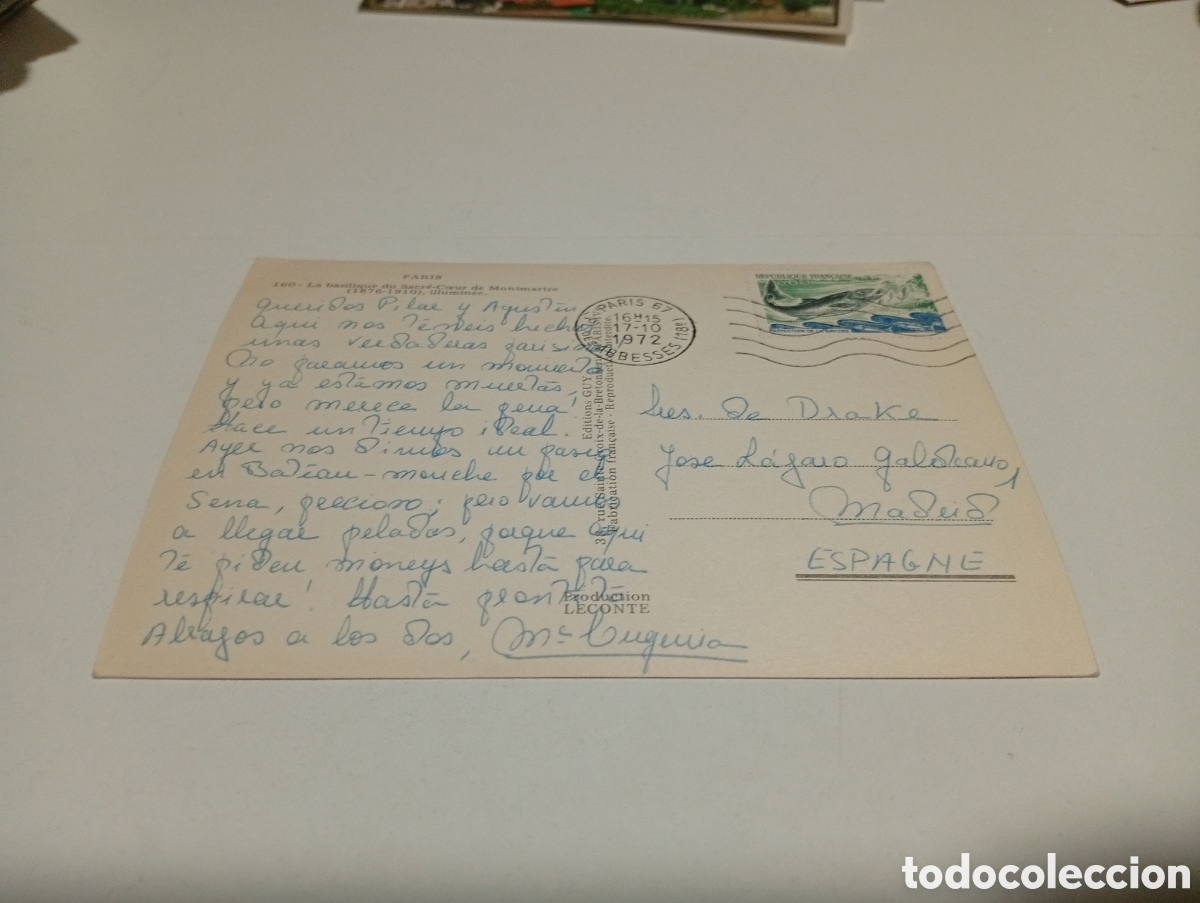 PARIS
160 - La basilique du Sacré-Cœur de Montmartre
(1876-1910), illuminée.
Queridos Pilar y Agustín
Aquí nos tenéis hechas
unas verdaderas parisinas
No paramos un momento
y ya estamos muertas,
pero merece la pena!
Hace un tiempo ideal.
Ayer nos dimos un paseo
en Bateau-mouche por el
Sena, precioso; pero vamos
a llegar peladas, porque aquí
te piden moneys hasta para
respirar! Hasta prontito
Abrazos a los dos, Mª Eugenia
Editions GUY
38, rue Sainte-Croix-de-la-Bretonnerie PARIS
Fabrication française - Reproduction interdite
Production
LECONTE
PARIS 67
16H15
17-10
1972
ABBESSES (18e)
REPUBLIQUE FRANÇAISE
Sres. de Drake
Jose Lázaro Galdeano, 1
Madrid
ESPAGNE
todocoleccion